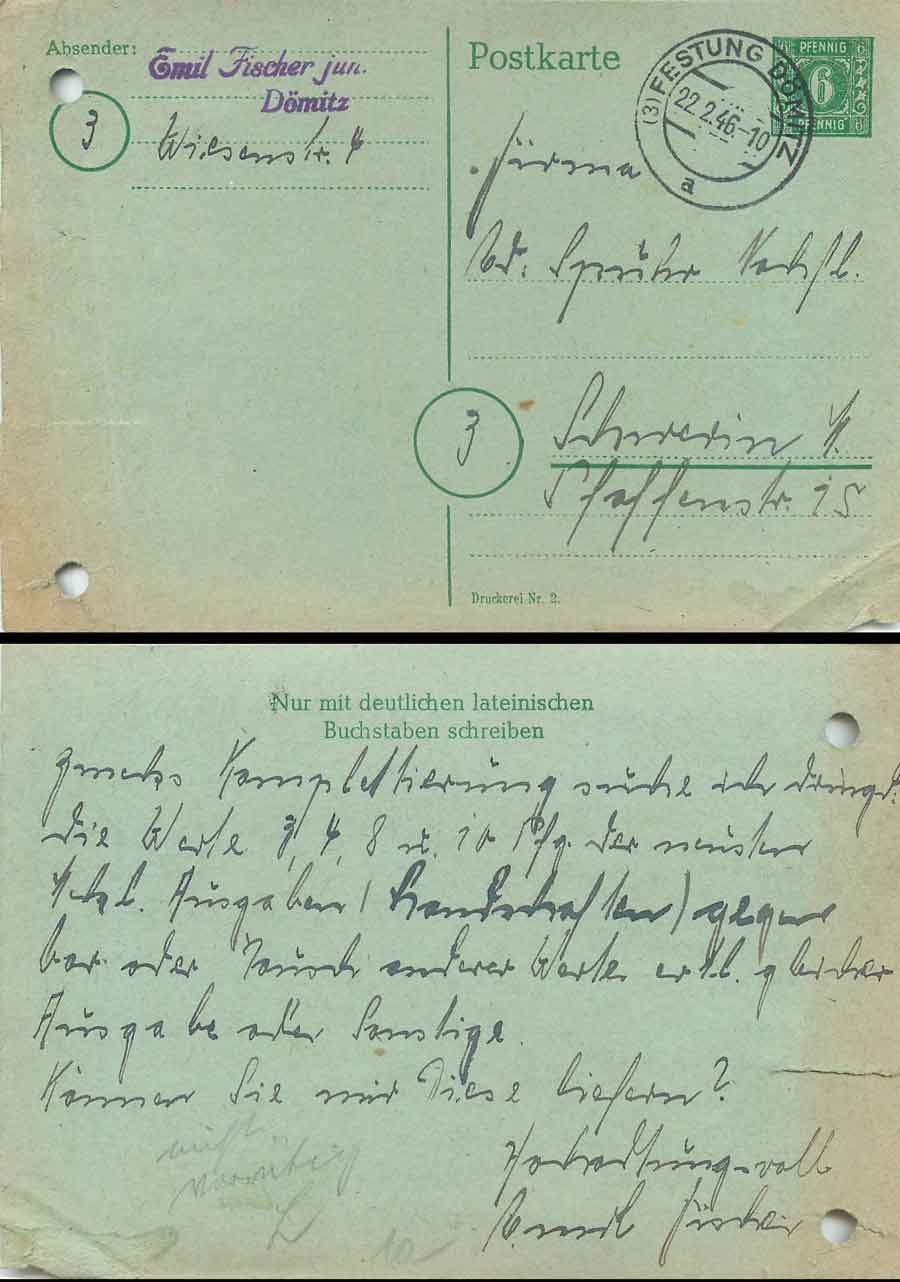 Absender:
Emil Fischer jun.
Dömitz
3
Wiesenstr. 4
Postkarte
(3) FESTUNG DÖMITZ
22.2.46-10
a
6 PFENNIG 6
6
PFENNIG
Firma
Ed. Nachfl.
3
Schwerin M.
Pfaffenstr. 15
Druckerei Nr. 2.
Nur mit deutlichen lateinischen
Buchstaben schreiben
Zwecks Komplettierung suche ich dringd.
die Werte 3, 4, 8 u. 10 Pfg. der neusten
Meckl. Ausgaben (Landschaften) gegen
bar oder Tausch anderer Werte evtl. gleicher
Ausgabe oder Sonstige.
Können Sie mir Diese liefern?
Hochachtungsvoll
Emil Fischer
nicht
vorrätig